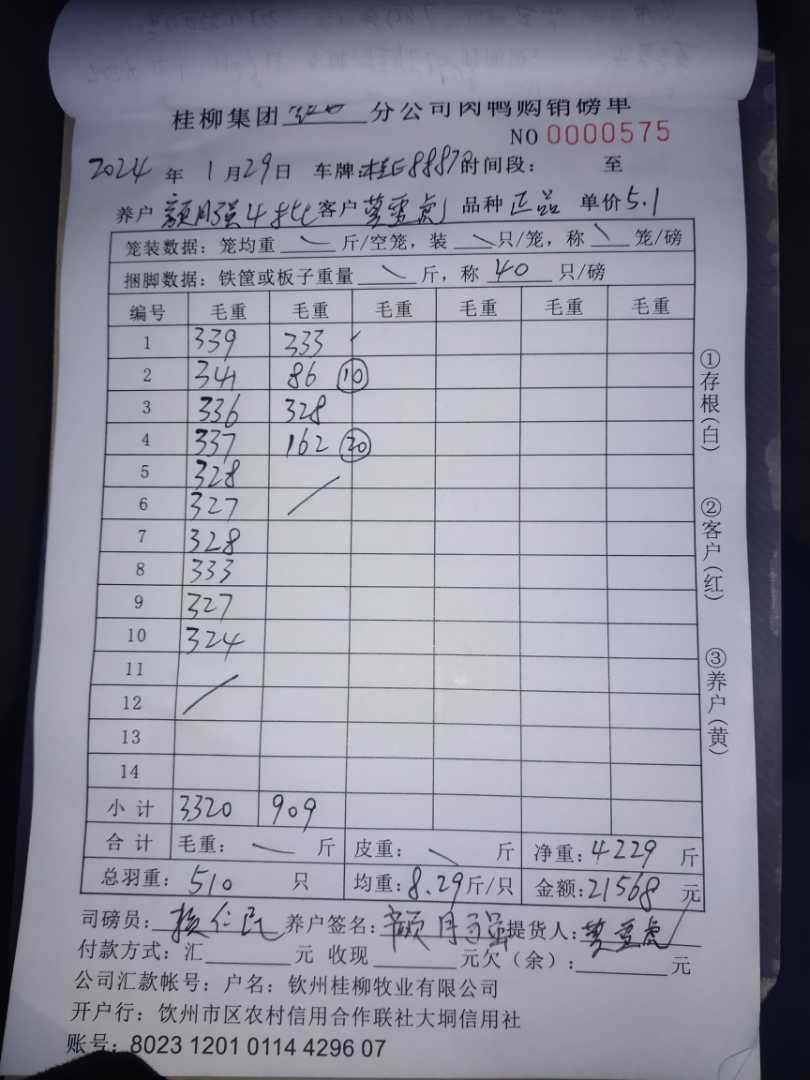 桂柳集团 分公司肉鸭购销磅单
NO 0000575
2024 年 1 月 29 日 车牌:桂 88878 时间段: 至
养户 颜月强4批 客户 品种 正品 单价 5.1
笼装数据: 笼均重 \ 斤/空笼, 装 \ 只/笼, 称 \ 笼/磅
捆脚数据: 铁筐或板子重量 \ 斤, 称 40 只/磅
编号 毛重 毛重 毛重 毛重 毛重 毛重
1 339 333
2 341 86 ⑩
3 336 328
4 337 162 ⑳
5 328
6 327 /
7 328
8 333
9 327
10 324
11
12 /
13
14
小计 3320 909
合计 毛重: \ 斤 皮重: \ 斤 净重: 4229 斤
总羽重: 510 只 均重: 8.29 斤/只 金额: 21568 元
司磅员: 仁民 养户签名: 颜月强 提货人:
付款方式: 汇 元 收现 元欠(余): 元
公司汇款帐号: 户名: 钦州桂柳牧业有限公司
开户行: 饮州市区农村信用合作联社大垌信用社
账号: 8023 1201 0114 4296 07
①存根(白)
②客户(红)
③养户(黄)